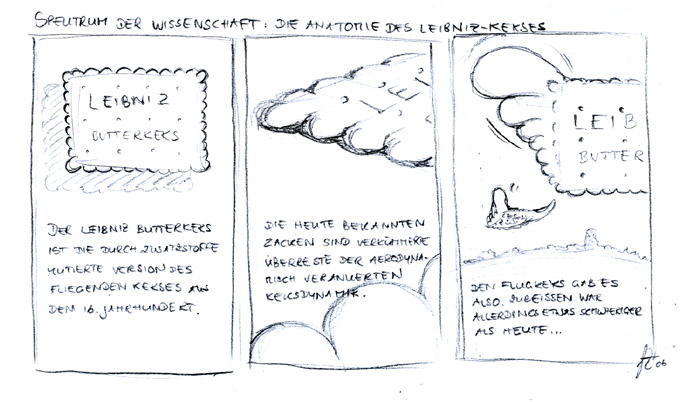 SPEKTRUM DER WISSENSCHAFT: DIE ANATOMIE DES LEIBNIZ-KEKSES
LEIBNIZ
BUTTERKEKS
DER LEIBNIZ BUTTERKEKS
IST DIE DURCH ZUSATZSTOFFE
MUTIERTE VERSION DES
FLIEGENDEN KEKSES AUS
DEM 16. JAHRHUNDERT.
DIE HEUTE BEKANNTEN
ZACKEN SIND VERKÜMMERTE
ÜBERRESTE DER AERODYNA-
MISCH VERANKERTEN
KEKSDYNAMIK.
LEIB
BUTTER
DEN FLUGKEKS GAB ES
ALSO. ZUBEISSEN WAR
ALLERDINGS ETWAS SCHWIERIGER
ALS HEUTE...
06